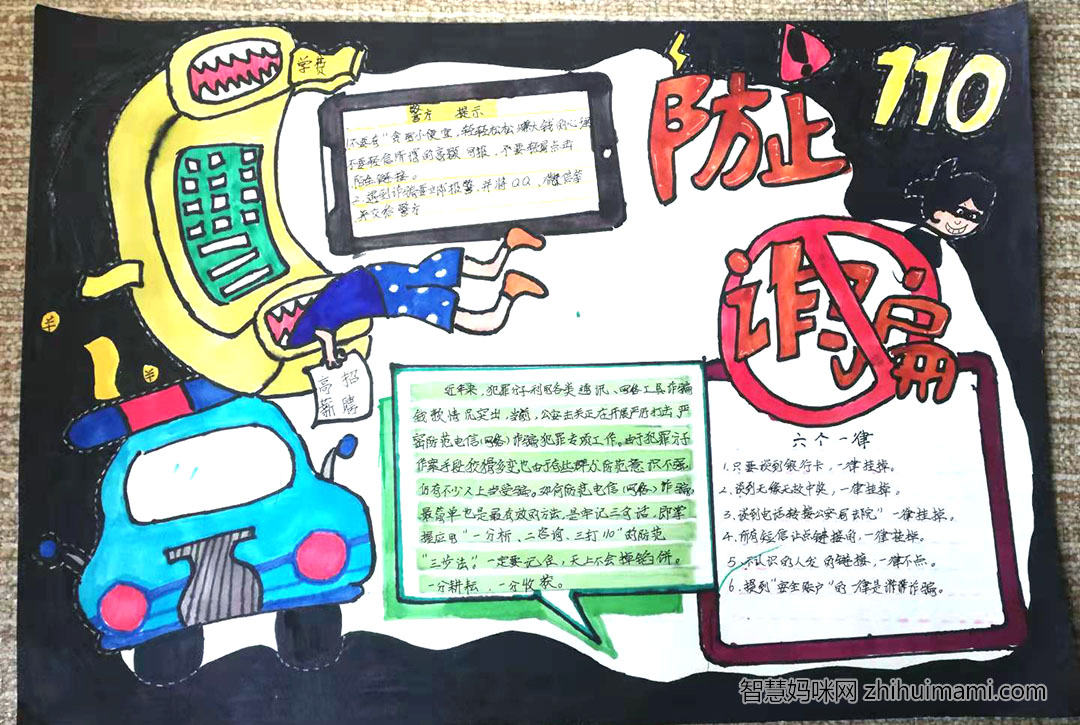 学费
防止
110
诈骗
警方 提示
1.不要有"贪图小便宜,轻轻松松赚大钱的心理
不要轻信所谓的高额回报,不要轻易点击
陌生链接。
2.遇到诈骗要立即报警,并将QQ、微信等
并交给警方
高 招
薪 聘
近年来,犯罪分子利用各类通讯、网络工具诈骗
钱款情况突出,当前,公安击关正在开展严厉打击,严
密防范电信(网络)诈骗犯罪专项工作。由于犯罪分子
作案手段狡猾多变也由于有些群众防范意识不强,
仍有不少人上当受骗。如何防范电信(网络)诈骗,
最简单也是最有效的方法,是牢记三句话,即掌
握应用"一分析、二咨询、三打110"的防范
"三步法。"一定要记住,天上不会掉馅饼。
一分耕耘,一分收获。
六个一律
1.只要谈到银行卡,一律挂掉。
2.谈到无缘无故中奖,一律挂掉。
3.谈到电话转接公安局去院"一律挂掉。
4.所有短信让点链接的,一律挂掉。
5.不认识的人发的链接,一律不点。
6.提到"安全账户"的一律是诈骗。
智慧妈咪网 zhihuimami.com